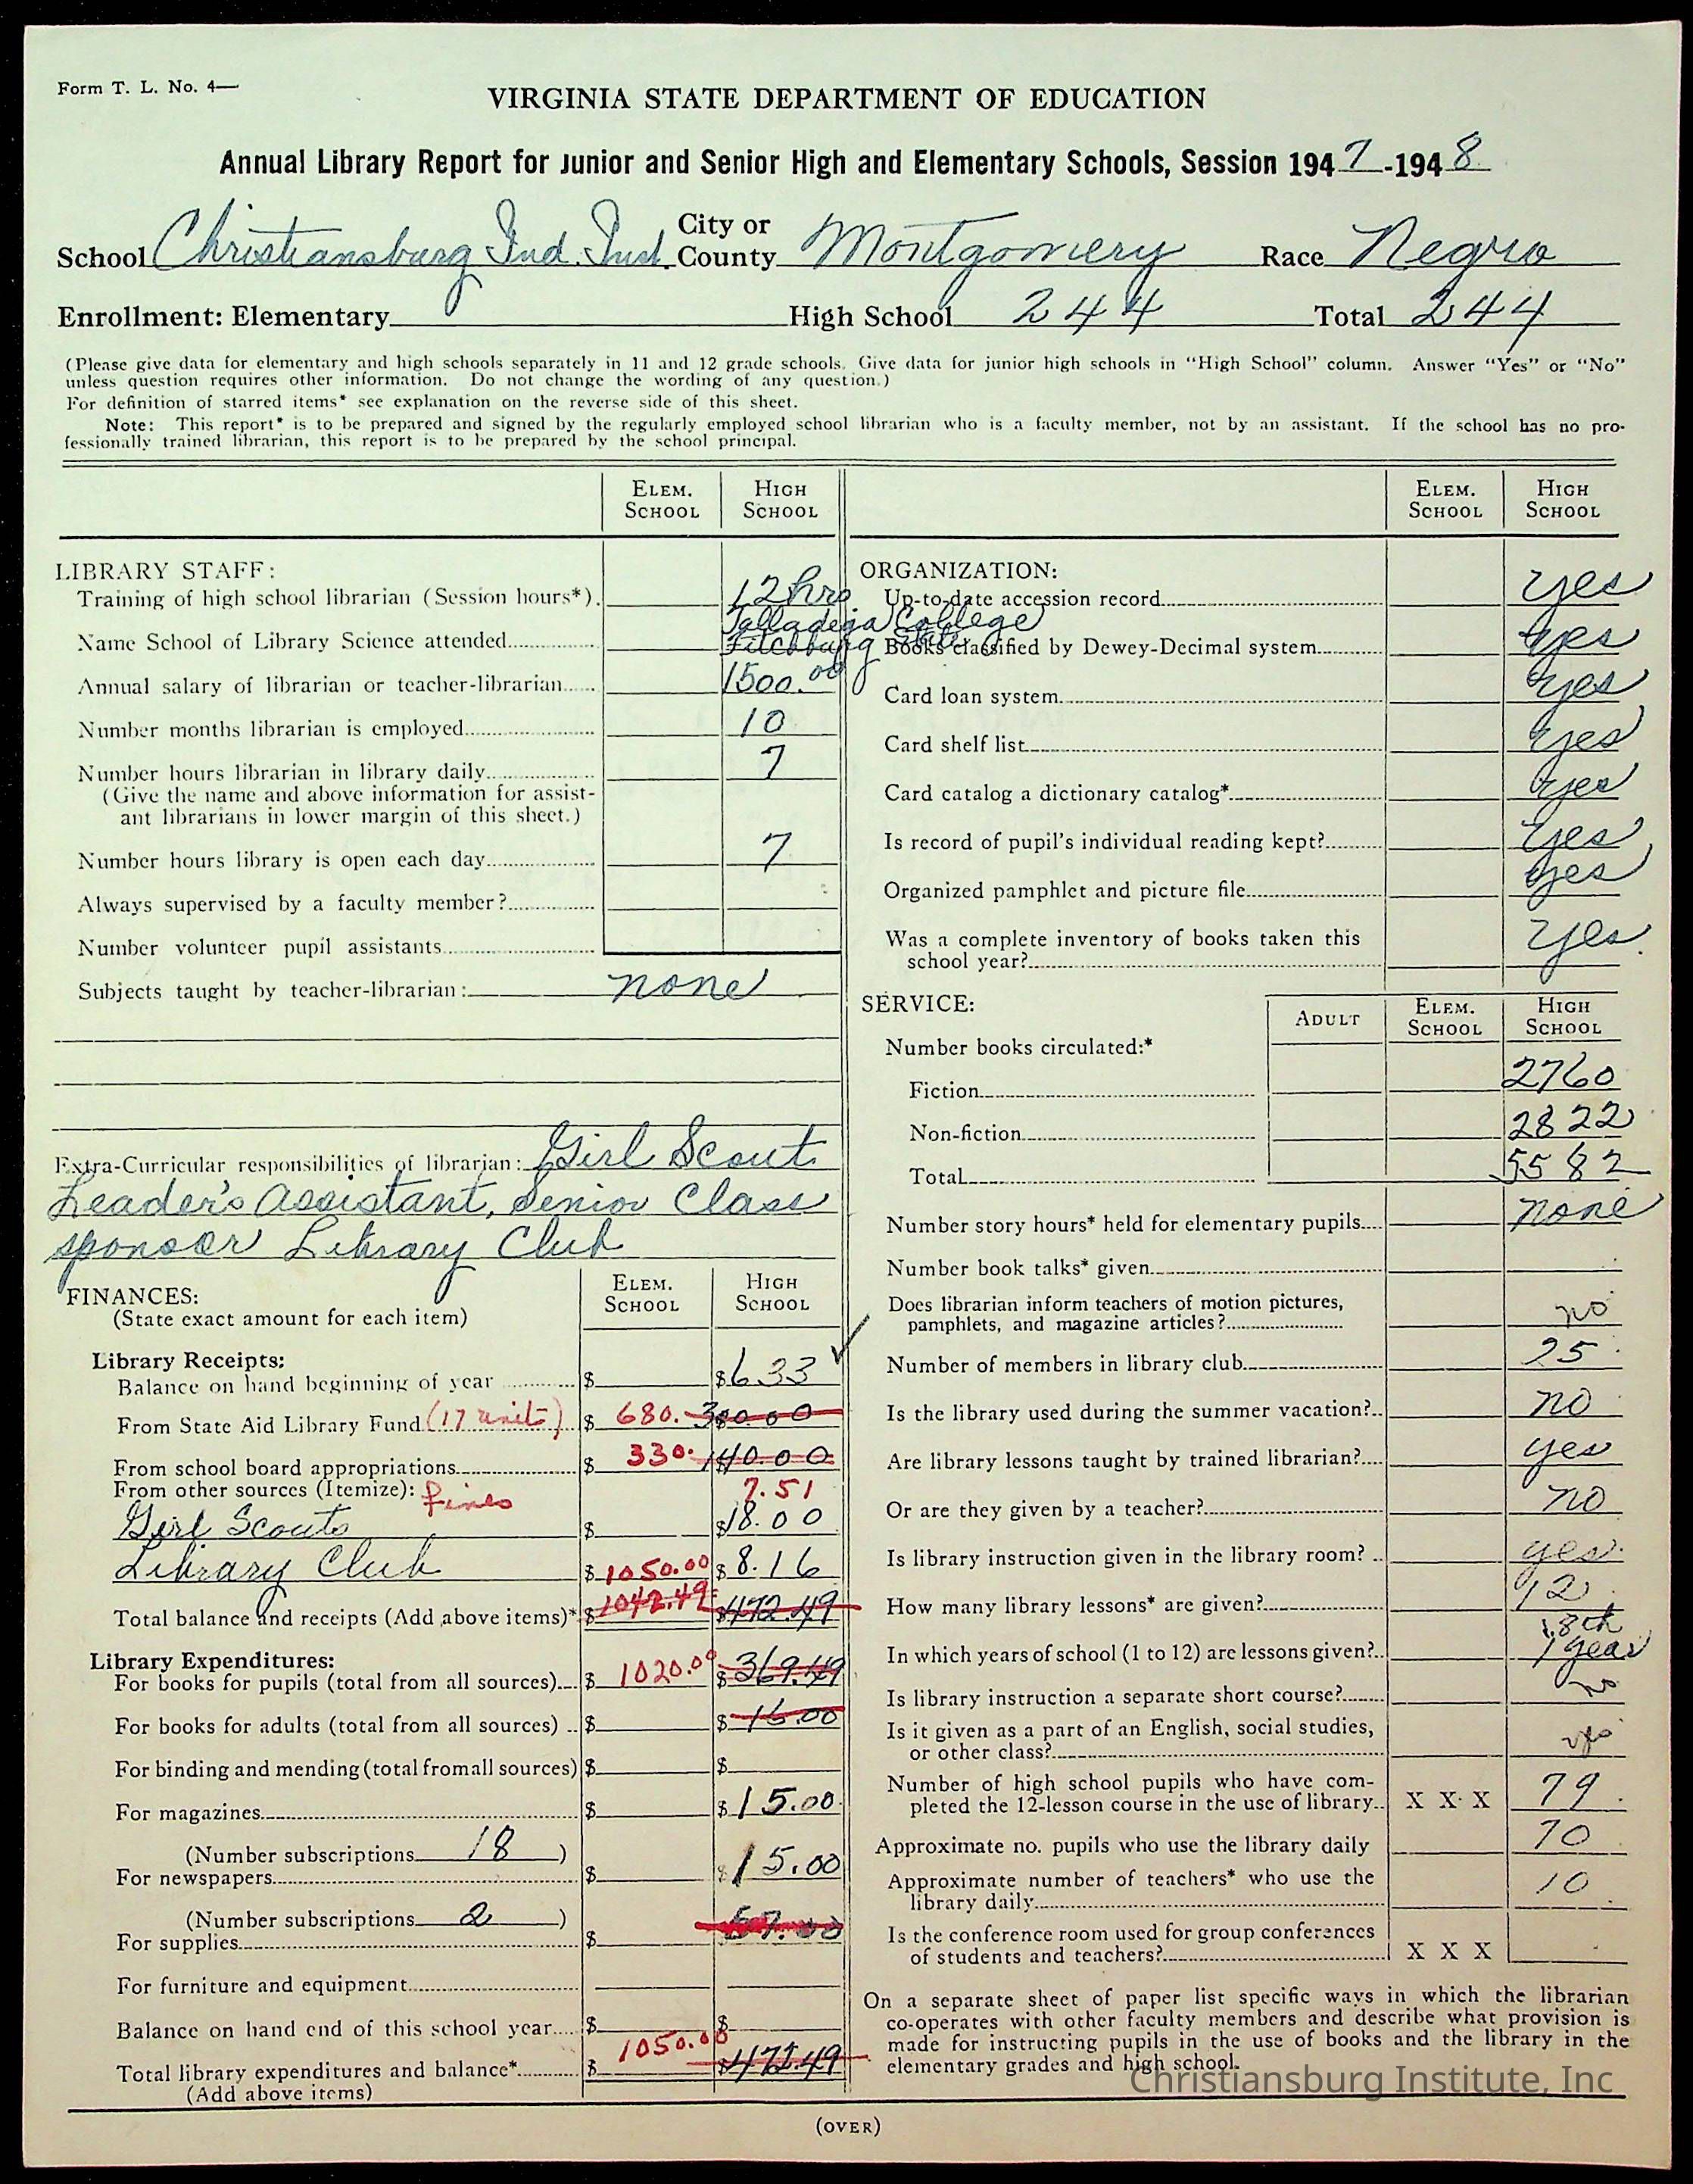 Form T. L. No. 4—
VIRGINIA STATE DEPARTMENT OF EDUCATION
Annual Library Report for Junior and Senior High and Elementary Schools, Session 1947-1948
School Christiansburg Ind. Inst. City or County Montgomery Race Negro
Enrollment: Elementary High School 244 Total 244
(Please give data for elementary and high schools separately in 11 and 12 grade schools. Give data for junior high schools in "High School" column. Answer "Yes" or "No"
unless question requires other information. Do not change the wording of any question.)
For definition of starred items* see explanation on the reverse side of this sheet.
Note: This report* is to be prepared and signed by the regularly employed school librarian who is a faculty member, not by an assistant. If the school has no pro-
fessionally trained librarian, this report is to be prepared by the school principal.
ELEM. SCHOOL HIGH SCHOOL
LIBRARY STAFF:
Training of high school librarian (Session hours*). 12 hrs
Name School of Library Science attended Talladega College
Fitchburg State
Annual salary of librarian or teacher-librarian 1500.00
Number months librarian is employed 10
Number hours librarian in library daily 7
(Give the name and above information for assist-
ant librarians in lower margin of this sheet.)
Number hours library is open each day 7
Always supervised by a faculty member?
Number volunteer pupil assistants
Subjects taught by teacher-librarian: none
Extra-Curricular responsibilities of librarian: Girl Scout
Leader's Assistant, Senior Class
sponsor Library Club
FINANCES: ELEM. SCHOOL HIGH SCHOOL
(State exact amount for each item)
Library Receipts:
Balance on hand beginning of year $ $6.33
From State Aid Library Fund (17 units) $ 680. 300.00
From school board appropriations $ 330. 140.00
From other sources (Itemize): fines 7.51
Girl Scouts $ $18.00
Library Club $1050.00 $8.16
Total balance and receipts (Add above items)* $1042.49 $472.49
Library Expenditures:
For books for pupils (total from all sources) $ 1020.00 $369.49
For books for adults (total from all sources) $ $15.00
For binding and mending (total from all sources) $ $
For magazines $ $15.00
(Number subscriptions 18)
For newspapers $ $15.00
(Number subscriptions 2)
For supplies $ 57.00
For furniture and equipment
Balance on hand end of this school year $ $
Total library expenditures and balance* $ 1050.00 $471.49
(Add above items)
ELEM. SCHOOL HIGH SCHOOL
ORGANIZATION:
Up-to-date accession record yes
Books classified by Dewey-Decimal system yes
Card loan system yes
Card shelf list yes
Card catalog a dictionary catalog* yes
Is record of pupil's individual reading kept? yes
Organized pamphlet and picture file yes
Was a complete inventory of books taken this
school year? yes
SERVICE: ADULT ELEM. SCHOOL HIGH SCHOOL
Number books circulated:*
Fiction 2760
Non-fiction 2822
Total 5582
Number story hours* held for elementary pupils none
Number book talks* given
Does librarian inform teachers of motion pictures,
pamphlets, and magazine articles? no
Number of members in library club 25
Is the library used during the summer vacation? no
Are library lessons taught by trained librarian? yes
Or are they given by a teacher? no
Is library instruction given in the library room? yes
How many library lessons* are given? 12
In which years of school (1 to 12) are lessons given? 8th year
Is library instruction a separate short course? no
Is it given as a part of an English, social studies,
or other class? yes
Number of high school pupils who have com-
pleted the 12-lesson course in the use of library X X X 79
Approximate no. pupils who use the library daily 70
Approximate number of teachers* who use the
library daily 10
Is the conference room used for group conferences
of students and teachers? X X X
On a separate sheet of paper list specific ways in which the librarian
co-operates with other faculty members and describe what provision is
made for instructing pupils in the use of books and the library in the
elementary grades and high school.
Christiansburg Institute, Inc
(OVER)